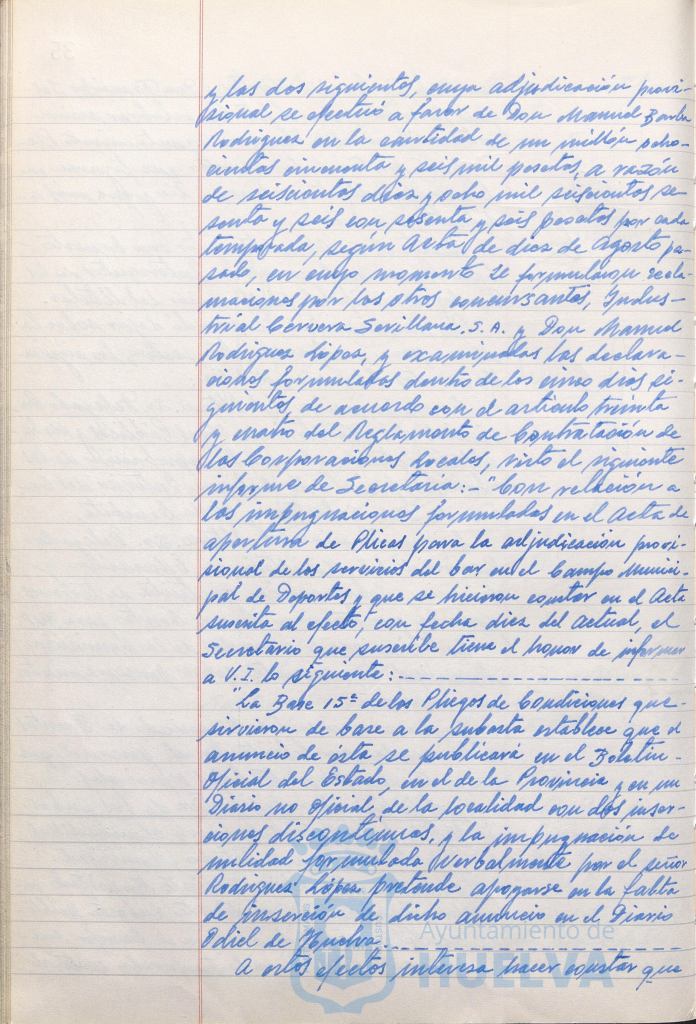 y las dos siguientes, cuya adjudicación provi-
sional se efectuó a favor de Don Manuel Barba
Rodriguez en la cantidad de un millón ocho-
cientas cincuenta y seis mil pesetas, a razón
de seiscientas diez y ocho mil seiscientas se-
senta y seis con sesenta y seis pesetas por cada
temporada, según Acta de diez de Agosto pa-
sado, en cuyo momento se formularon recla-
maciones por los otros concursantes, Indus-
trial Cervera Sevillana, S.A. y Don Manuel
Rodriguez López, y examinadas las declara-
ciones formuladas dentro de los cinco dias si-
guientes, de acuerdo con el articulo treinta
y cuatro del Reglamento de Contratación de
las Corporaciones Locales, visto el siguiente
informe de Secretaria: - "Con relación a
las impugnaciones formuladas en el acta de
apertura de Plicas para la adjudicación provi-
sional de los servicios del bar en el Campo Munici-
pal de Deportes y que se hicieron constar en el Acta
suscrita al efecto, con fecha diez del actual, el
Secretario que suscribe tiene el honor de informar
a V.I. lo siguiente:
"La Base 15ª de los Pliegos de Condiciones que
sirvieron de base a la subasta establece que el
anuncio de ésta se publicará en el Boletin
Oficial del Estado, en el de la Provincia y en un
Diario no oficial, de la localidad con dos inser-
ciones discontinuas, y la impugnación de
nulidad formulada verbalmente por el señor
Rodriguez López pretende apoyarse en la falta
de inserción de dicho anuncio en el Diario
Odiel de Huelva.
A estos efectos interesa hacer constar que
Ayuntamiento de
HUELVA